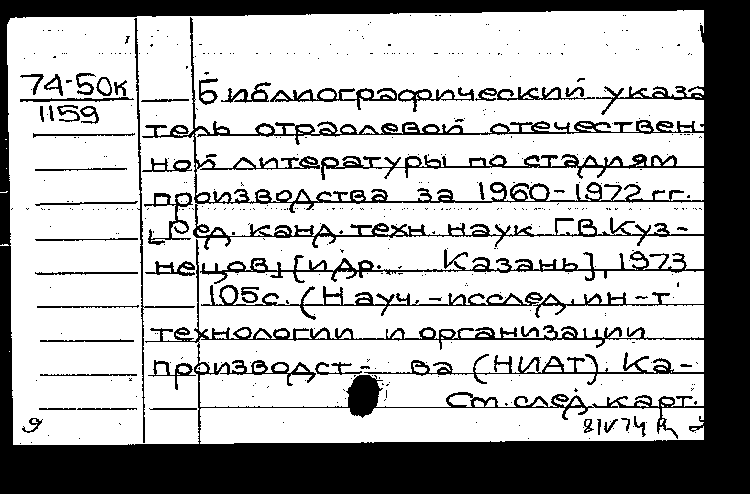 74-50к
1159
Библиографический указа
тель отраслевой отечествен-
ной литературы по стадиям
производства за 1960-1972 гг.
[Ред. канд. техн. наук Г.В. Куз-
нецов] [и др. Казань], 1973
105с. (Науч.-исслед. ин-т
технологии и организации
производст- ва (НИАТ). Ка-
См. след. карт.
9